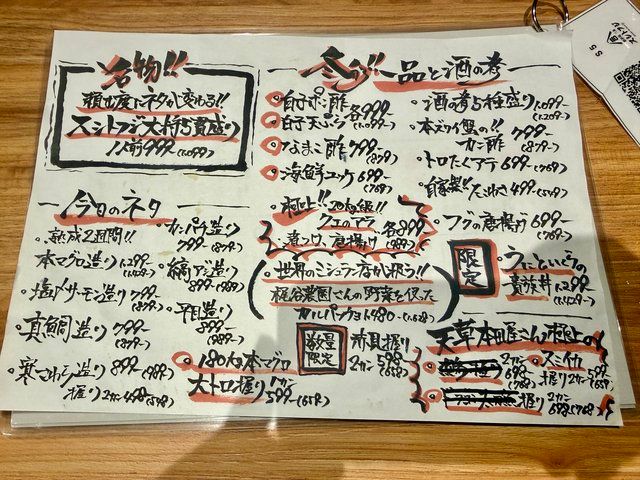 名物!!
頼む度にネタが変わる!!
大将お責盛り
1人前 999- (1,099-)
今日のネタ
熟成2週間!!
本マグロ造り 1,299-
塩〆サーモン造り 799- (879-)
真鯛造り 799- (879-)
寒さわら造り 899- (989-)
握り 2カン 498- (548-)
カンパチ造り 799- (879-)
縞アジ造り 899- (989-)
平目造り 899- (989-)
180kg本マグロ
大トロ握り 1カン 599- (659-)
冬の!! 一品と酒の肴
白子ポン酢 各999-
白子天ぷら (1,099-)
なまこ酢 799- (879-)
海鮮ユッケ 699- (769-)
極上!! 20kg級!!
クエのアラ 各899-
煮つけ、唐揚げ (989-)
世界のミシュラン店が扱う!!
梶谷農園さんの野菜を使った
カルパッチョ 1,480- (1,628-)
数量限定
赤貝握り
2カン 598- (658-)
酒の肴5種盛り 1,099- (1,209-)
本ズワイ蟹の!!
カニ酢 799- (879-)
トロたくアテ 699- (769-)
自家製!! 499- (549-)
フグの唐揚げ 699- (769-)
限定
うにといくらの
贅沢丼 1,299- (1,429-)
天草本田屋さん極上の
2カン 698- (768-)
スミイカ
握り 2カン 599- (659-)
握り 2カン 698- (768-)